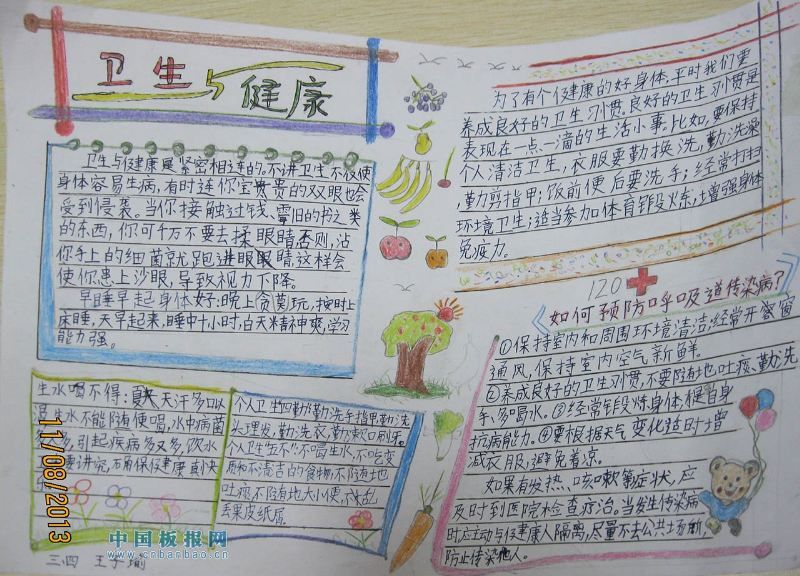 卫生与健康
卫生与健康是紧密相连的。不讲卫生不仅使
身体容易生病,有时连你宝贵的双眼也会
受到侵袭。当你接触过钱、零旧的书之类
的东西,你可千万不要去揉眼睛,否则,沾
你手上的细菌就跑进眼眼睛,这样会
使你患上沙眼,导致视力下降。
早睡早起身体好:晚上贪莫玩,按时上
床睡,天早起来,睡中十小时,白天精神爽,学习
能力强。
生水喝不得:夏天天汗多口
生水不能随便喝,水中病菌
引起疾病多又多,饮水
要讲究,确保健康
个人卫生四勤:勤洗手指甲,勤洗
头理发,勤洗衣,勤漱口刷牙。
个人卫生五不:不喝生水,不吃变
质和不清洁的食物,不随地
吐痰,不随地大小便,不乱
丢果皮纸屑。
为了有个健康的好身体,平时我们要
养成良好的卫生习惯。良好的卫生习惯是
表现在一点一滴的生活小事。比如,要保持
个人清洁卫生,衣服要勤换洗,勤洗澡
,勤剪指甲;饭前便后要洗手;经常打扫
环境卫生;适当参加体育锻炼,增强身体
免疫力。
120
《如何预防呼吸道传染病?》
①保持室内和周围环境清洁;经常开窗
通风,保持室内空气新鲜。
②养成良好的卫生习惯,不要随地吐痰、勤洗
手、多喝水。③经常锻炼身体,
抗病能力。④要根据天气变化适时增
减衣服,避免着凉。
如果有发热、咳嗽等症状,应
及时到医院检查疗治。当发生传染病
时应主动与健康人隔离,尽量不去公共场所,
防止传染他人。
三.四 王子瑜
中国板报网
www.cnbanbao.cn
11/08/2013